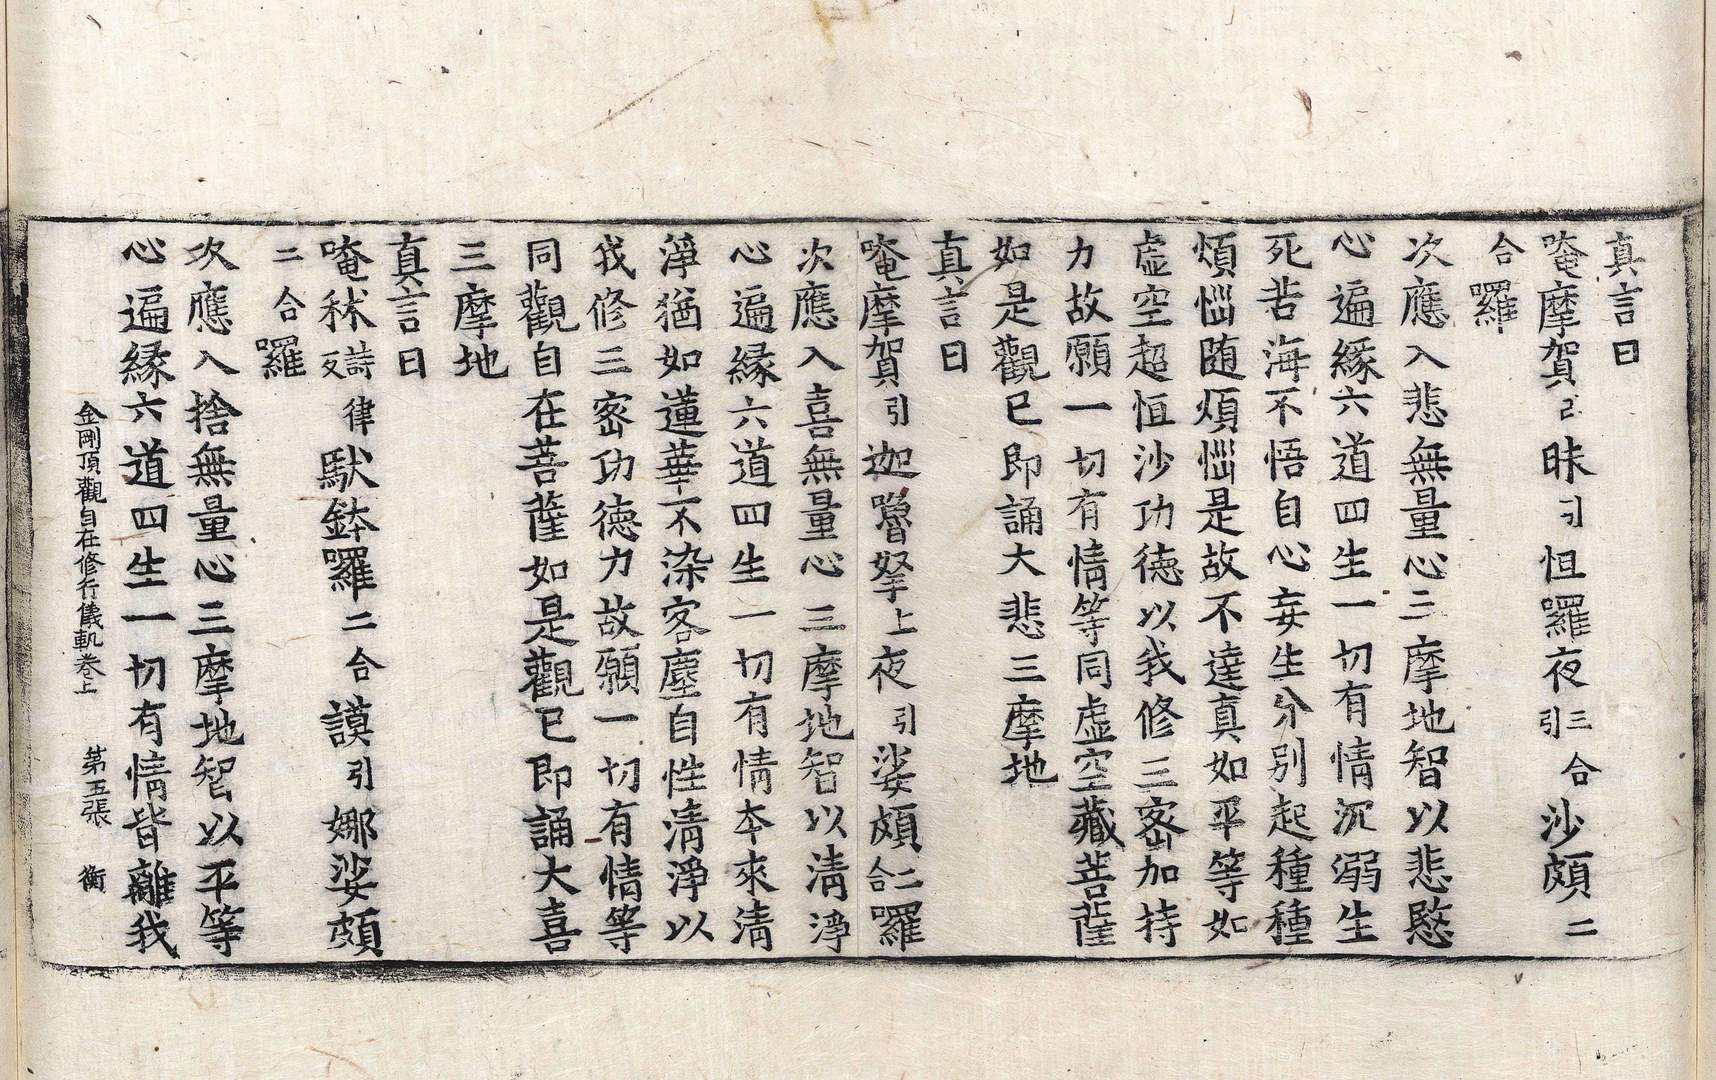 真言曰
唵摩賀引昧引怛羅夜三合引沙頗二
合羅
次應入悲無量心三摩地智以悲愍
心遍緣六道四生一切有情沉溺生
死苦海不悟自心妄生分別起種種
煩惱随煩惱是故不達真如平等如
虛空超恒沙功德以我修三密加持
力故願一切有情等同虛空藏菩薩
如是觀已即誦大悲三摩地
真言曰
唵摩賀引迦嚕拏上夜引娑頗二合羅
次應入喜無量心三摩地智以清淨
心遍緣六道四生一切有情本來清
淨猶如蓮華不染客塵自性清淨以
我修三密功德力故願一切有情等
同觀自在菩薩如是觀已即誦大喜
三摩地
真言曰
唵秫詩律反馱鉢羅二合謨引娜娑頗
二合羅
次應入捨無量心三摩地智以平等
心遍緣六道四生一切有情皆離我
金剛頂觀自在修行儀軌卷上 第五張 衡